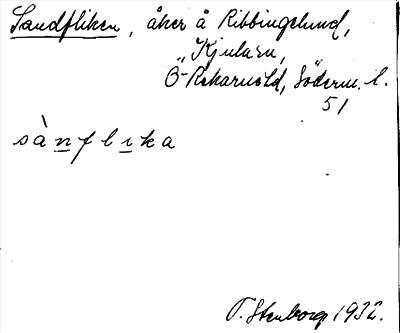 Sandfliken, åker å Ribbingelund,
Kjulasn,
Ö-Rekarnehld, Söderm. l.
51
sànflika
T. Stenborg 1932.